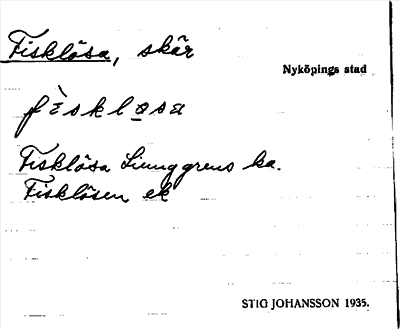 Fisklösa, skär
Nyköpings stad
fìskløsa
Fisklösa Liunggrens ka.
Fisklösen ek
STIG JOHANSSON 1935.